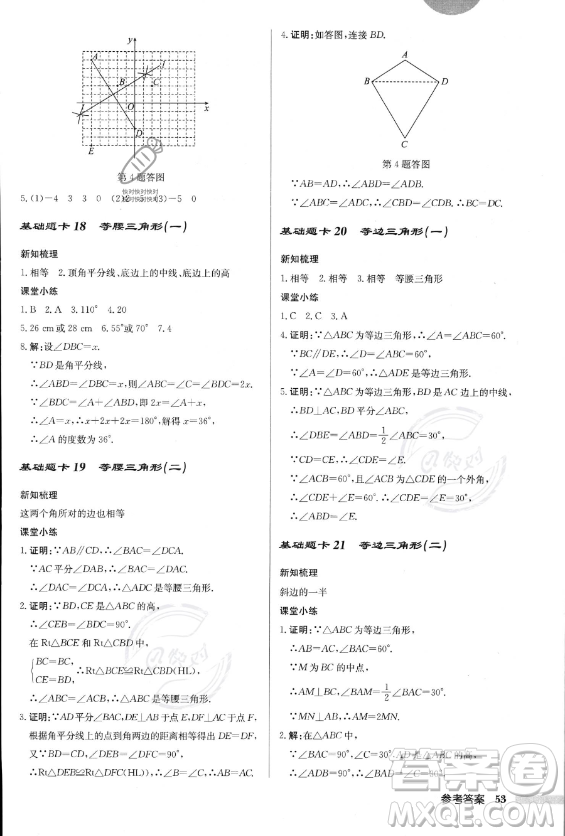 A
B
C
D
E
O
x
第4题答图
5.(1)-4 3 3 0 (2)2 5 (3)-5 0
快对快对快对
快对快对快对
基础题卡18 等腰三角形(一)
新知梳理
1.相等 2.顶角平分线、底边上的中线、底边上的高
课堂小练
1.B 2.A 3.110° 4.20
5.26 cm或28 cm 6.120° 7.4
8.解:设∠DBC=x.
∵BD是角平分线,
∴∠ABD=∠DBC=x,则∠ABC=∠C=2x.
∵∠BDC=∠A+∠ABD=2x,
∴∠A=x,∴x+2x+2x=180°,解得x=36°,
∴∠A的度数为36°.
基础题卡19 等腰三角形(二)
新知梳理
这两个角所对的边也相等
课堂小练
1.证明:∵AB∥CD,∴∠BAC=∠ACD.
∵AC平分∠BCD,∴∠BCA=∠ACD,
∴∠BAC=∠BCA,∴△ABC是等腰三角形.
2.证明:∵BD,CE是△ABC的高,
∴∠CEB=∠BDC=90°.
在Rt△EBC和Rt△CBD中,
BC=BC,
CE=BD,
∴Rt△BCE≌Rt△CBD(HL),
∴∠EBC=∠DCB,∴△ABC是等腰三角形.
3.证明:∵AD平分∠BAC,DE⊥AB于点E,DF⊥AC于点F,
根据角平分线上的点到角两边的距离相等得出DE=DF.
又∵BD=CD,∴Rt△BDE≌Rt△CDF(HL),
∴∠B=∠C,∴△ABC是等腰三角形.
4.证明:如答图,连接BD.
A
B
D
C
第4题答图
∵AB=AD,∴∠ABD=∠ADB.
∵∠ABC=∠ADC,∴∠CBD=∠CDB,∴BC=DC.
基础题卡20 等边三角形(一)
新知梳理
1.相等 相等 等腰三角形
课堂小练
1.C 2.C 3.20°
4.证明:∵△ABC为等边三角形,∴∠B=∠C=60°.
∵BC∥DE,∴∠ADE=∠B=60°,
∠AED=∠C=60°,∴△ADE是等边三角形.
5.证明:∵△ABC为等边三角形,BD是AC边上的中线,
∴BD⊥AC,BD平分∠ABC,
∴∠DBE=∠ABD=1/2∠ABC=30°.
∵CD=CE,∴∠CDE=∠E.
∵∠ACB=60°,且∠ACB为△CDE的一个外角,
∴∠CDE+∠E=60°,∴∠CDE=∠E=30°,
∴∠DBE=∠E=30°,∴BD=DE.
基础题卡21 等边三角形(二)
新知梳理
斜边的一半
课堂小练
1.证明:∵△ABC是等边三角形,
∴∠BAC=60°,AB=AC.
∵M为BC的中点,
∴AM⊥BC,∠BAM=1/2∠BAC=30°.
∵MN⊥AB,∴∠ANM=90°,
∴AM=2MN.
2.解:∵∠BAC=90°,AD是△ABC的高,
∴∠BAC=∠ADB=90°.
∵∠C=30°,∴∠B=60°,
∴∠BAD=30°.
快对
答案圈
MXQE.COM
参考答案 53